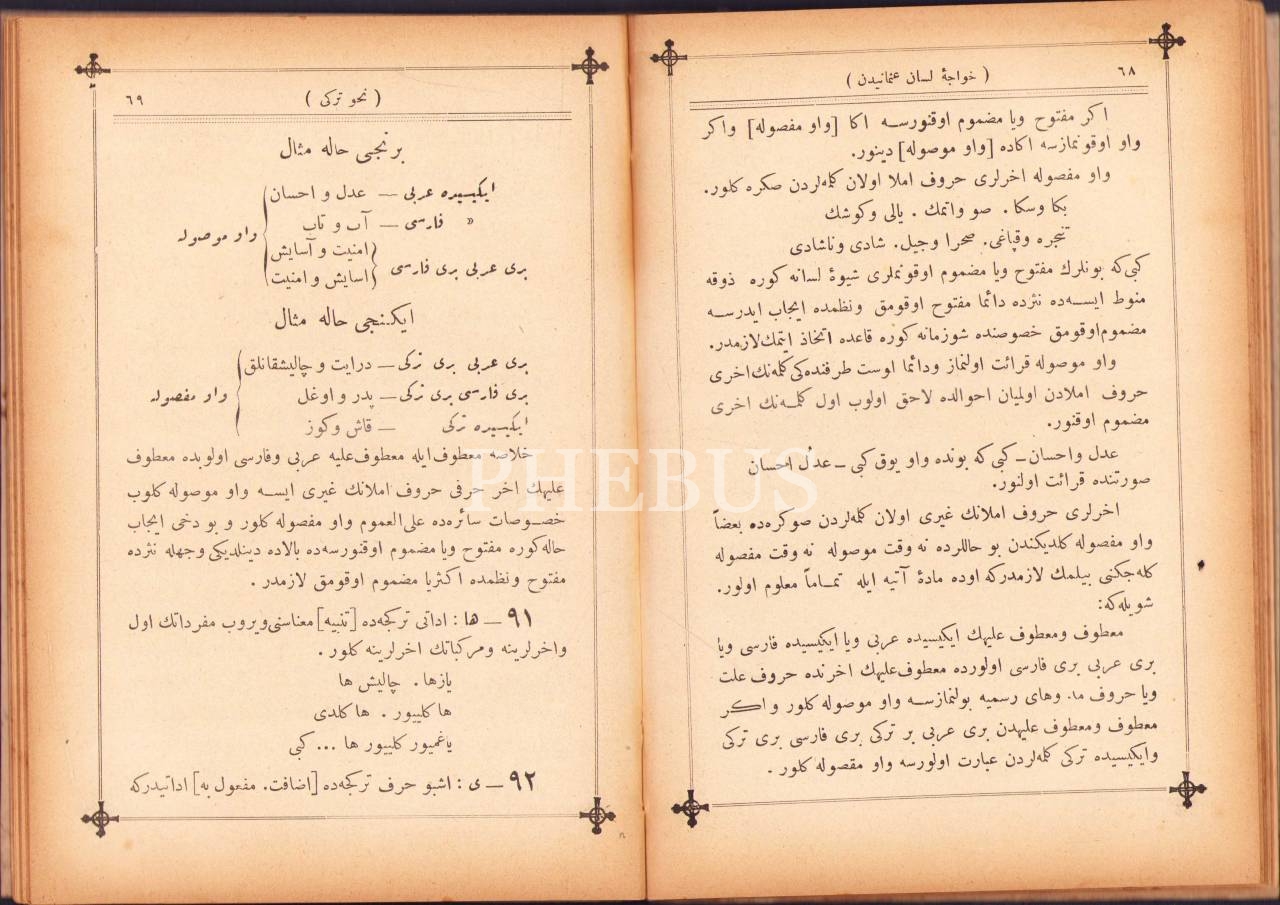 ٦٨
( خواجهٔ لسان عثمانیدن )
اكر مفتوح ویا مضموم اوقنورسه اكا [واو مفصوله] واكر
واو اوقونمازسه اكاده [واو موصوله] دینور.
واو مفصوله اخرلری حروف املا اولان كلمه‌لردن صكره كلور.
بكا وسكا . صو واتمك . یالی وكوشك
تنجره وقپاغی. صحرا وجیل. شادی وناشادی
كبی كه بونلرك مفتوح ویا مضموم اوقونملری شیوهٔ لسانه كوره ذوقه
منوط ایسه‌ده نثرده دائما مفتوح اوقومق ونظمده ایجاب ایدرسه
مضموم اوقومق خصوصنده شوزمانه كوره قاعده اتخاذ ایتمك لازمدر.
واو موصوله قرائت اولنماز ودائما اوست طرفنده‌كی كلمه‌نك اخری
حروف املادن اولمیان احوالده لاحق اولوب اول كلمه‌نك اخری
مضموم اوقنور.
عدل واحسان ــ كبی كه بونده واو یوق كبی ــ عدلُ احسان
صورتنده قرائت اولنور.
اخرلری حروف املانك غیری اولان كلمه‌لردن صوكره‌ده بعضاً
واو مفصوله كلدیكندن بو حاللرده نه وقت موصوله نه وقت مفصوله
كله‌جكنی بیلمك لازمدركه اوده مادهٔ آتیه ایله تماماً معلوم اولور.
شویله كه:
معطوف ومعطوف علیهك ایكیسیده عربی ویا ایكیسیده فارسی ویا
بری عربی بری فارسی اولورده معطوف علیهك اخرنده حروف علت
ویا حروف مد. وهای رسمیه بولنمازسه واو موصوله كلور واكر
معطوف ومعطوف علیهدن بری عربی بر تركی بری فارسی بری تركی
وایكیسیده تركی كلمه‌لردن عبارت اولورسه واو مفصوله كلور .
( نحو تركی )
٦٩
برنجی حاله مثال
ایكیسیده عربی ــ عدل و احسان
« فارسی ــ آب و تاب
بری عربی بری فارسی
امنیت و آسایش
اسایش و امنیت
واو موصوله
ایكنجی حاله مثال
بری عربی بری تركی ــ درایت و چالیشقانلق
بری فارسی بری تركی ــ پدر و اوغل
ایكیسیده تركی ــ قاش وكوز
واو مفصوله
خلاصه معطوف ایله معطوف علیه عربی وفارسی اولوبده معطوف
علیهك اخر حرفی حروف املانك غیری ایسه واو موصوله كلوب
خصوصات سائره‌ده علی العموم واو مفصوله كلور و بو دخی ایجاب
حاله كوره مفتوح ویا مضموم اوقنورسه‌ده بالاده دینلدیكی وجهله نثرده
مفتوح ونظمده اكثریا مضموم اوقومق لازمدر .
٩١ ــ ها : اداتی تركجه‌ده [تنبیه] معناسنی ویروب مفرداتك اول
واخرلرینه ومركباتك اخرلرینه كلور .
یازها . چالیش ها
ها كلییور . ها كلدی
یاغمیور كلییور ها ... كبی
٩٢ ــ ی : اشبو حرف تركجه‌ده [اضافت. مفعول به] اداتیدركه
PHEBUS